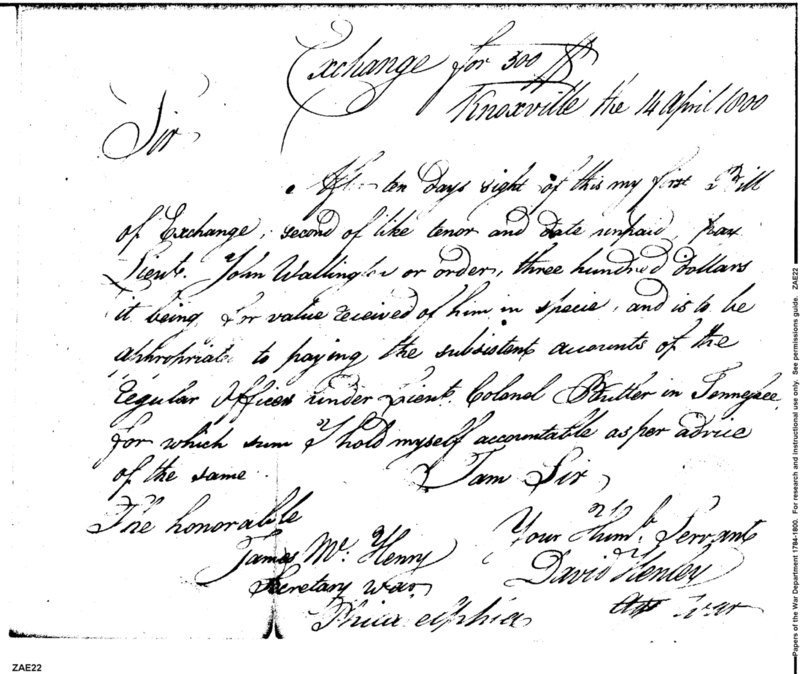 Exchange for 300 $
Knoxville the 14 April 1800
Sir
After ten days sight of this my first Bill
of Exchange, second of like tenor and date unpaid, pay
Lieut. John Wallington or order, three hundred dollars
it being for value received of him in specie, and is to be
appropriated to paying the subsistent accounts of the
regular Officers under Lieut. Colonel Butler in Tennessee,
for which sum I hold myself accountable as per advice
of the same.
I am Sir
The honorable
Your Humb. Servant
James Mc. Henry
David Henley
Secretary War
War
Philadelphia
ZAE22
Papers of the War Department 1784-1800. For research and instructional use only. See permissions guide. ZAE22